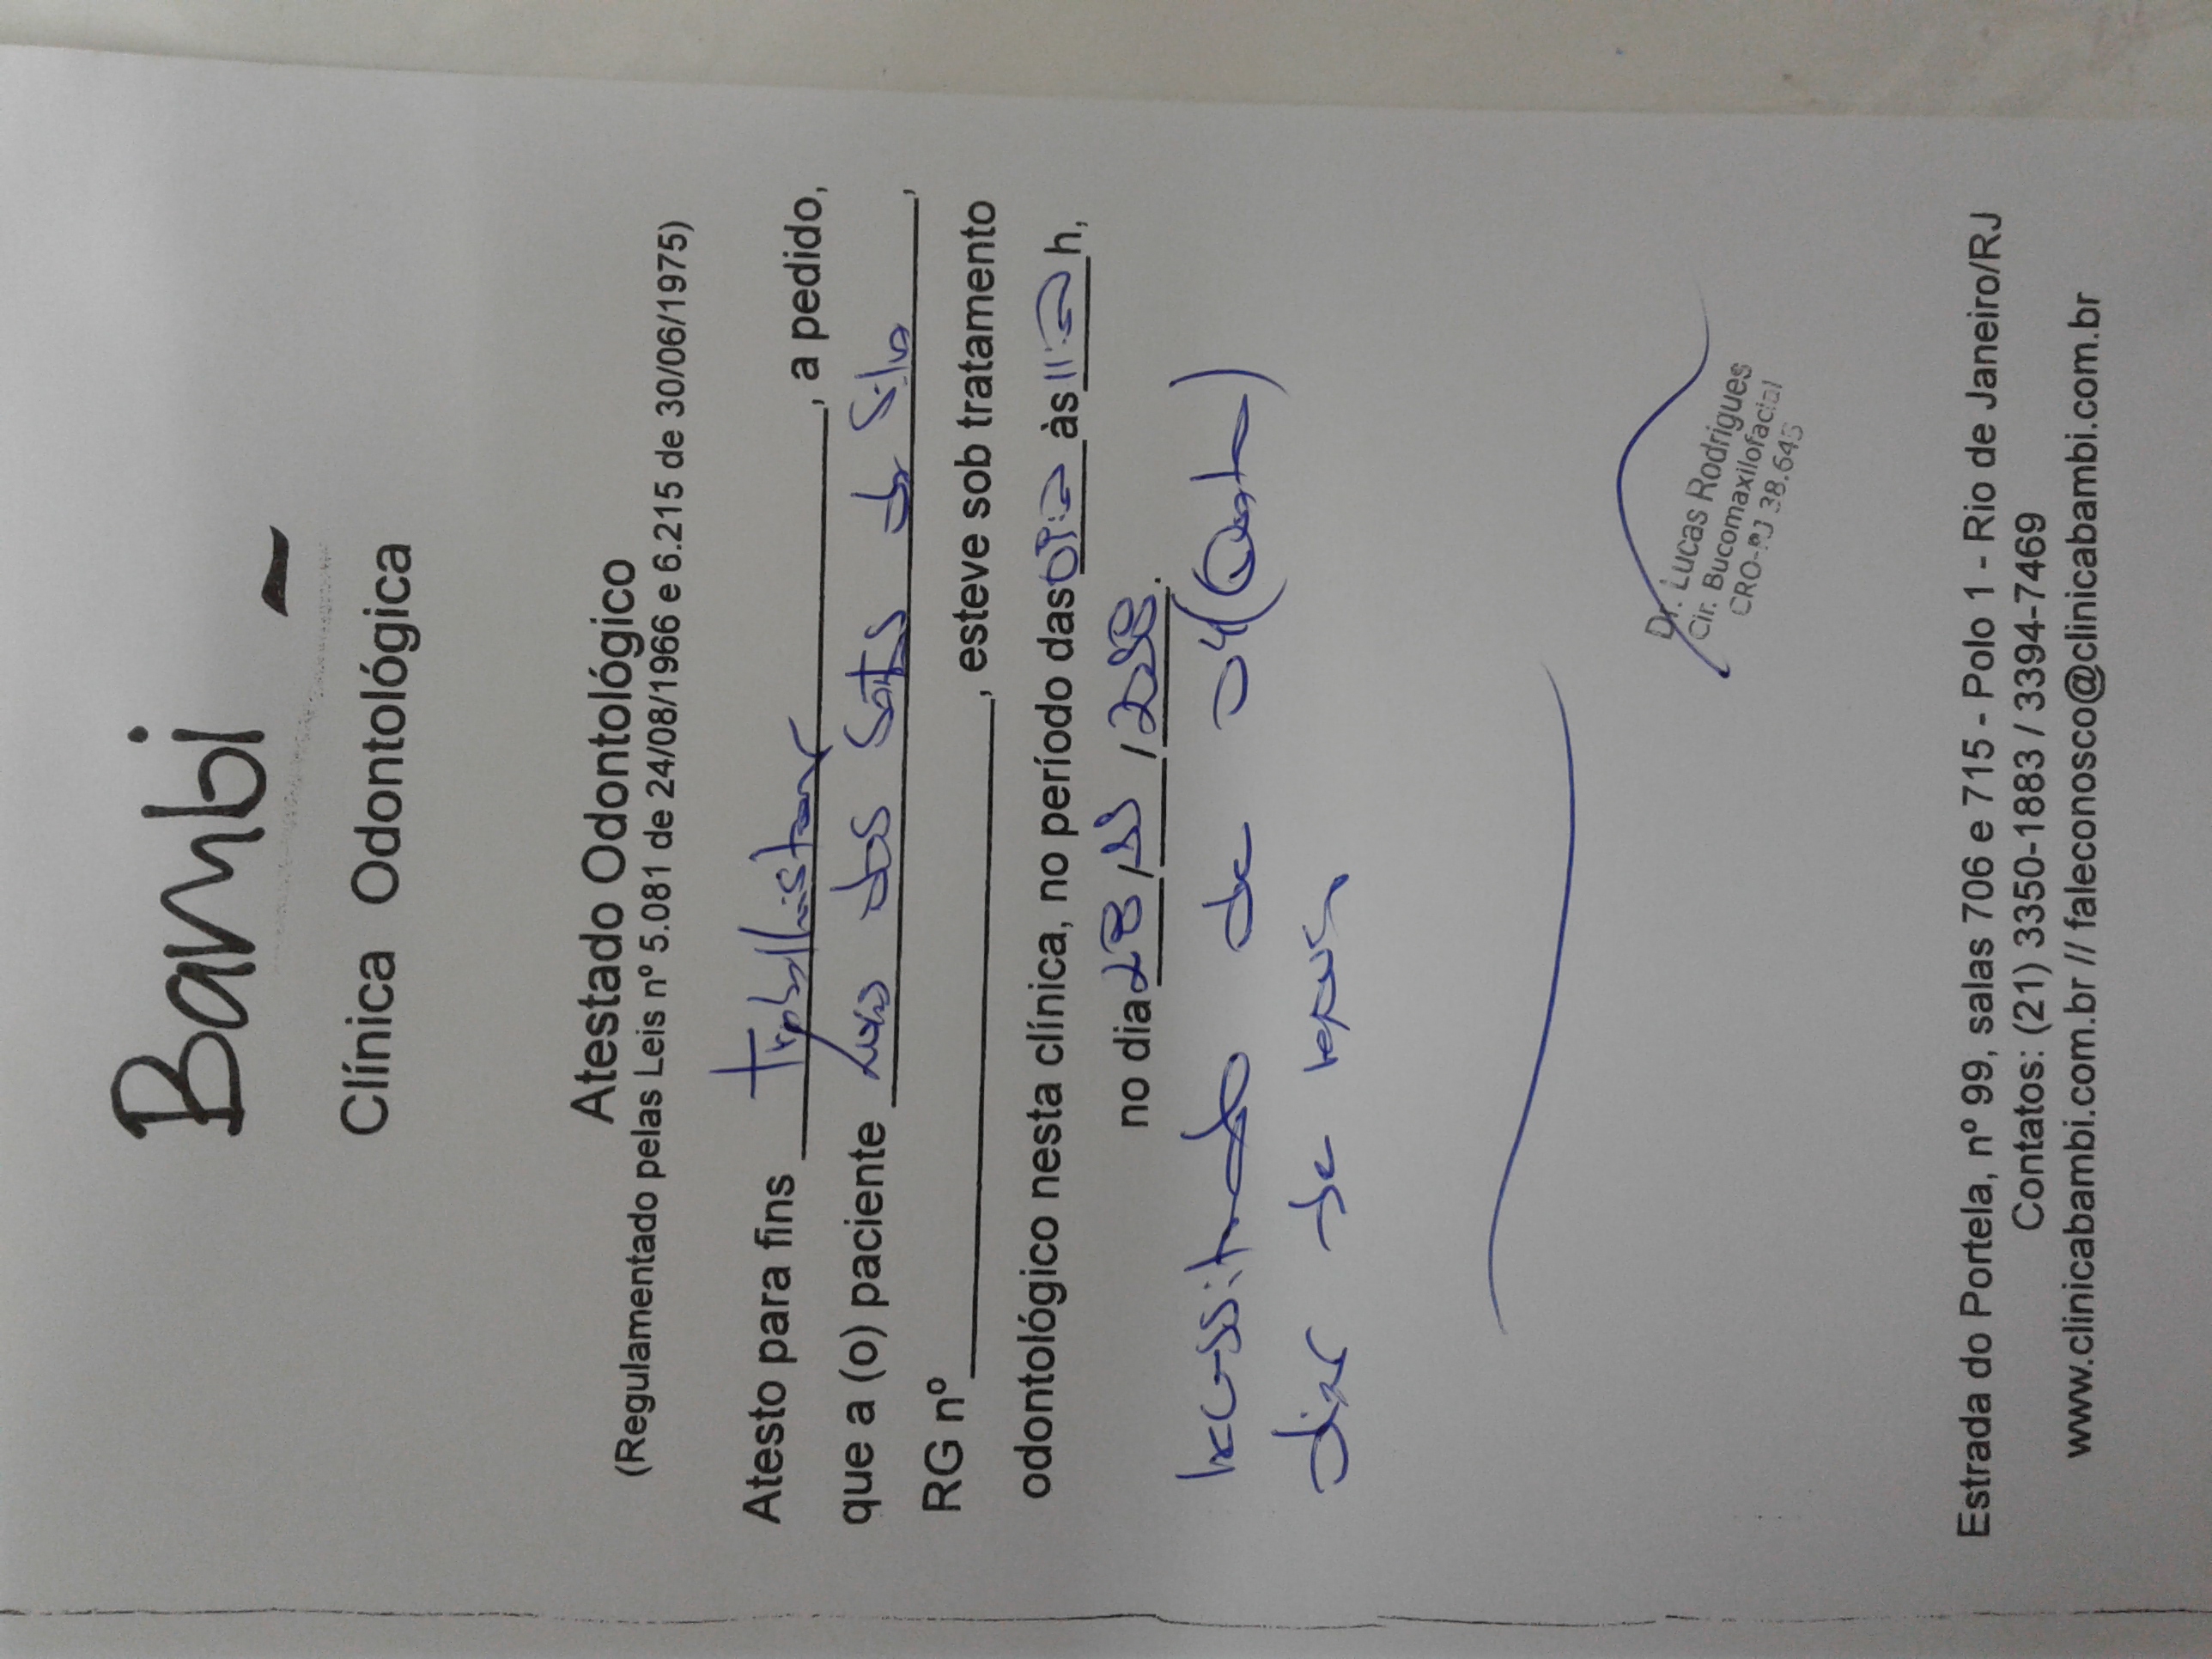 Bambi
Clínica Odontológica
Atestado Odontológico
(Regulamentado pelas Leis nº 5.081 de 24/08/1966 e 6.215 de 30/06/1975)
Atesto para fins, a pedido,
que a (o) paciente dos Santos da Silva,
RG nº, esteve sob tratamento
odontológico nesta clínica, no período das às 11:00 h,
no dia 28
necessitando de 04 (Quatro)
dias de repouso
Dr. Lucas Rodrigues
Cir. Bucomaxilofacial
CRO-RJ 38.645
Estrada do Portela, nº 99, salas 706 e 715 - Polo 1 - Rio de Janeiro/RJ
Contatos: (21) 3350-1883 / 3394-7469
www.clinicabambi.com.br // faleconosco@clinicabambi.com.br